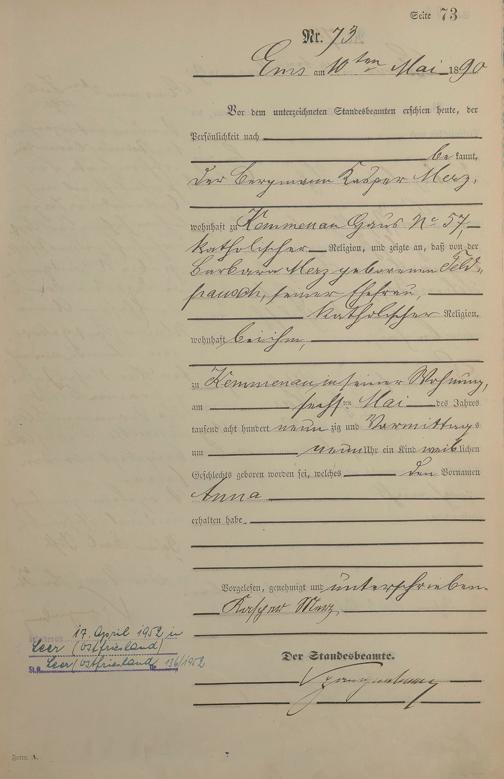 Seite 73
Nr. 73
Ems am 10ten Mai 1890
Vor dem unterzeichneten Standesbeamten erschien heute, der
Persönlichkeit nach
bekannt,
der Bergmann Kasper Merz,
wohnhaft zu Kemmenau Haus No 57,
katholischer Religion, und zeigte an, daß von der
Barbara Merz geborenen Feld-
pausch, seiner Ehefrau,
katholischer Religion,
wohnhaft bei ihm,
zu Kemmenau in seiner Wohnung,
am sechsten Mai des Jahres
tausend acht hundert neunzig und Vormittags
um neun Uhr ein Kind weiblichen
Geschlechts geboren worden sei, welches den Vornamen
Anna
erhalten habe
Vorgelesen, genehmigt und unterschrieben
Kasper Merz
17. April 1952 in
Leer (Ostfriesland)
St.A. Leer (Ostfriesland) Nr. 136/1952
Der Standesbeamte.
Form A.